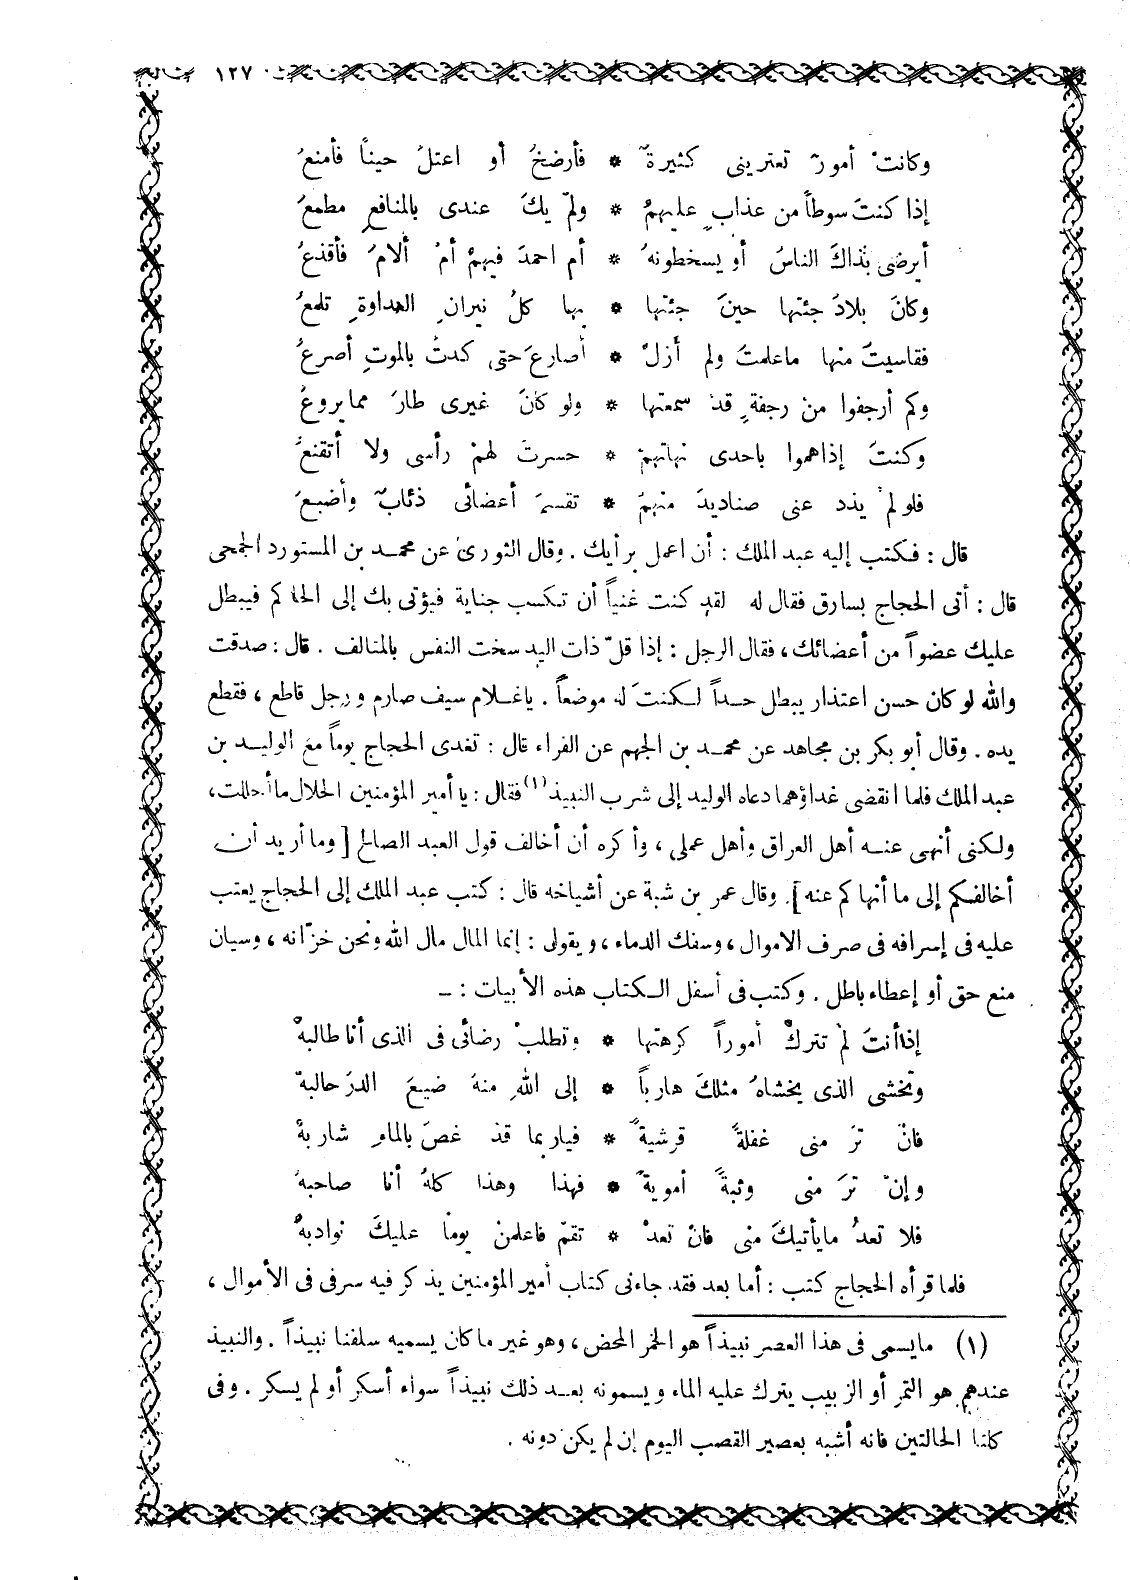 ١٢٧
وكانتْ أمورٌ تعترينى كثيرةٌ * فأرضخُ أو اعتلُ حيناً فأمنعُ
إذا كنتَ سوطاً من عذابٍ عليهمُ * ولمْ يكَ عندى بالمنافعِ مطمعُ
أيرضى بذاكَ الناسُ أو يسخطونهُ * أم احمدَ فيهمْ أمْ ألامُ فأقذعُ
وكانَ بلادٌ جئتها حينَ جئتها * بها كلُ نيرانِ العداوةِ تلمعُ
فقاسيتُ منها ماعلمتَ ولم أزلْ * أصارعَ حتى كدتُ بالموتِ أصرعُ
وكم أرجفوا من رجفةٍ قدْ سمعتها * ولو كانَ غيرى طارَ مما يروعُ
وكنتُ إذاهموا باحدى نهاتهمْ * حسرتُ لهمْ رأسى ولا أتقنعُ
فلو لمْ يذد عنى صناديدَ منهمُ * تقسمَ أعضائى ذئابٌ وأضبعُ
قال : فكتب إليه عبد الملك : أن اعمل برأيك . وقال الثورى عن محمد بن المستورد الجمحى
قال : أتى الحجاج بسارق فقال له لقد كنت غنياً أن تكسب جناية فيؤتى بك إلى الحاكم فيبطل
عليك عضواً من أعضائك ، فقال الرجل : إذا قلّ ذات اليد سخت النفس بالمتالف . قال : صدقت
والله لو كان حسن اعتذار يبطل حداً لكنتَ له موضعاً . ياغلام سيف صارم ورجل قاطع ، فقطع
يده . وقال أبو بكر بن مجاهد عن محمد بن الجهم عن الفراء قال : تغدى الحجاج يوماً مع الوليد بن
عبد الملك فلما انقضى غداؤهما دعاه الوليد إلى شرب النبيذ(١) فقال : يا أمير المؤمنين الحلال ما أحللت ،
ولكنى أنهى عنه أهل العراق وأهل عملى ، وأكره أن أخالف قول العبد الصالح [ وما أريد أن
أخالفكم إلى ما أنهاكم عنه ] . وقال عمر بن شبة عن أشياخه قال : كتب عبد الملك إلى الحجاج يعتب
عليه فى إسرافه فى صرف الاموال ، وسفك الدماء ، ويقول : إنما المال مال الله ونحن خزّانه ، وسيان
منع حق أو إعطاء باطل . وكتب فى أسفل الكتاب هذه الأبيات : ـ
إذا أنتَ لمْ تتركْ أموراً كرهتها * وتطلبْ رضائى فى الذى أنا طالبهْ
وتخشى الذى يخشاهُ مثلكَ هارباً * إلى اللهِ منهُ ضيعَ الدرَ حالبهْ
فانْ ترَ منى غفلةً قرشيةً * فياربما قدْ غصَ بالماءِ شاربهْ
وإنْ ترَ منى وثبةً أمويةً * فهذا وهذا كلهُ أنا صاحبهْ
فلا تعدُ مايأتيكَ منى فانْ تعدْ * تقمْ فاعلمنْ يوماً عليكَ نوادبهْ
فلما قرأه الحجاج كتب : أما بعد فقد جاءنى كتاب أمير المؤمنين يذكر فيه سرفى فى الأموال ،
(١) مايسمى فى هذا العصر نبيذاً هو الخمر المحض ، وهو غير ما كان يسميه سلفنا نبيذاً . والنبيذ
عندهم هو التمر أو الزبيب يترك عليه الماء ويسمونه بعد ذلك نبيذاً سواء أسكر أو لم يسكر . وفى
كلتا الحالتين فانه أشبه بعصير القصب اليوم إن لم يكن دونه .